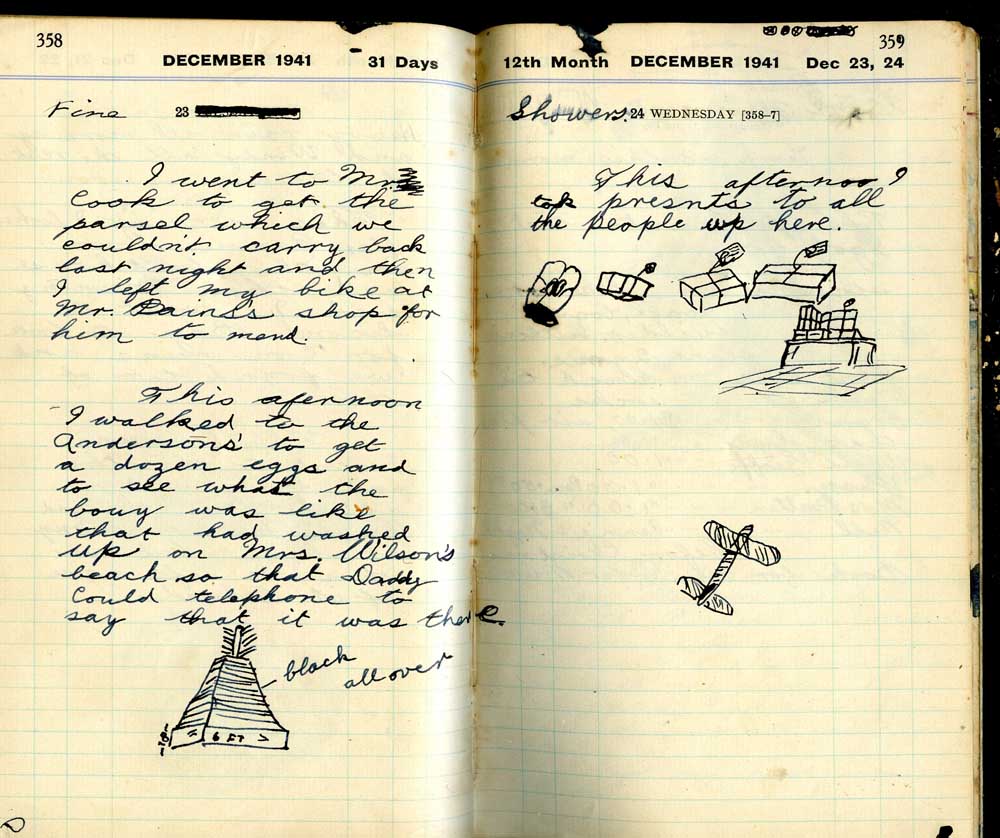 358
DECEMBER 1941 31 Days
Fine 23
I went to Mr
Cook to get the
parsel which we
couldn't carry back
last night and then
I left my bike at
Mr. Pains's shop for
him to mend.
This afernoon
I walked to the
Andersons' to get
a dozen eggs and
to see what the
bouy was like
that had washed
up on Mrs. Wilson's
beach so that Daddy
Could telephone to
say that it was there.
black
all over
6 FT
359
12th Month DECEMBER 1941 Dec 23, 24
Showers. 24 WEDNESDAY [358–7]
This afternoo I
tok presnts to all
the people up here.